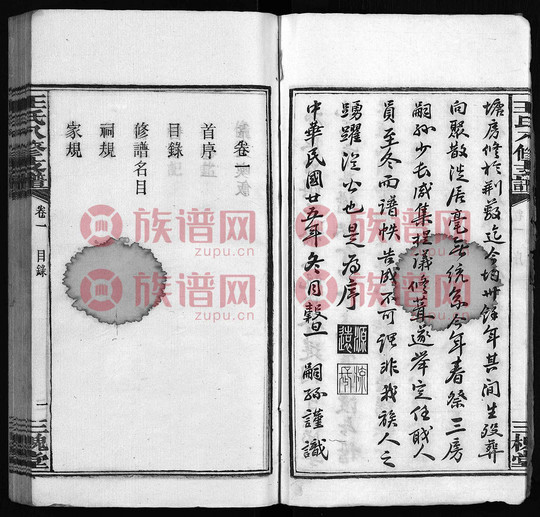 塘房修於荆蕟迄今均卅餘年其間生殁葬
向聚散迁居毫無統系今年春祭三房
嗣孫少長咸集提議修葺遂举定任职人
員至冬而谱帙告成不可謂非我族人之
踴躍從公也是為序
中華民國廿五年冬月穀旦 嗣孫謹識
源遠
王氏八修支譜
卷一 目録
一 三槐堂
卷一
首序
目錄
修譜名目
祠規
家規
族谱网
zupu.cn
族谱网
zupu.cn
族谱网
zupu.cn
族谱网
zupu.cn